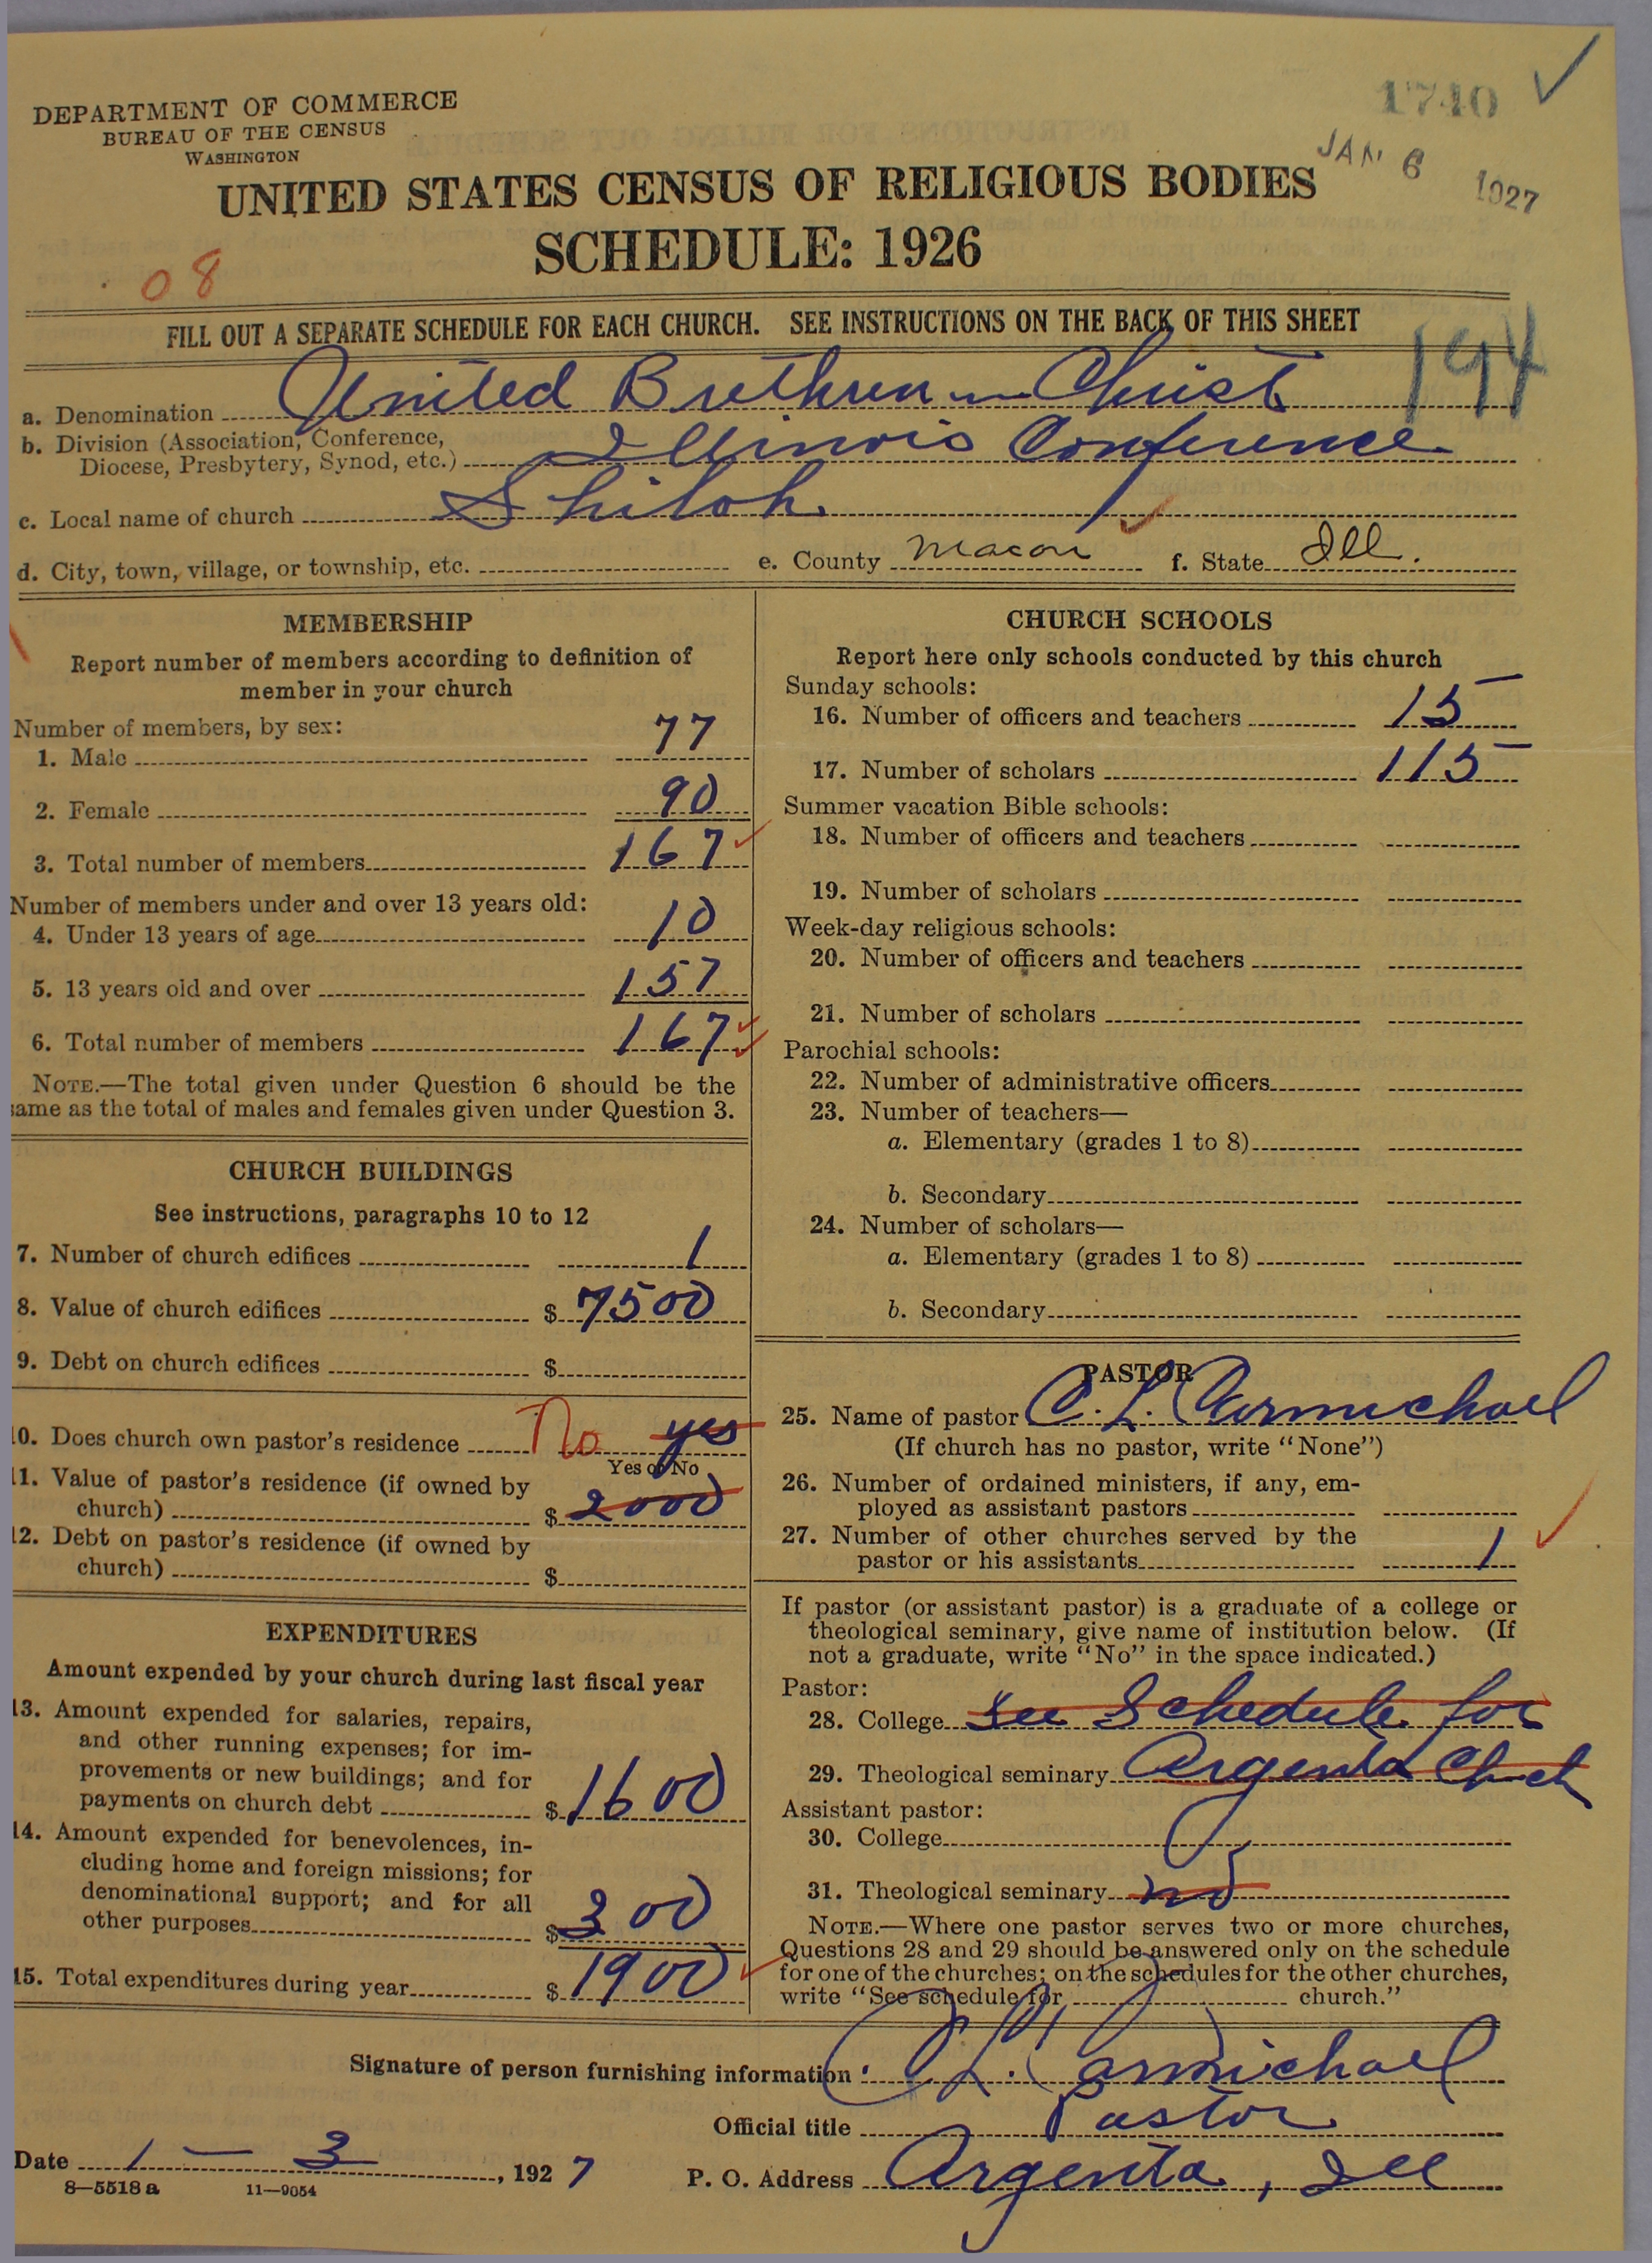 DEPARTMENT OF COMMERCE
BUREAU OF THE CENSUS
WASHINGTON
1740
JAN 6 1927
UNITED STATES CENSUS OF RELIGIOUS BODIES
SCHEDULE: 1926
08
FILL OUT A SEPARATE SCHEDULE FOR EACH CHURCH. SEE INSTRUCTIONS ON THE BACK OF THIS SHEET
194
a. Denomination United Brethren in Christ
b. Division (Association, Conference,
Diocese, Presbytery, Synod, etc.) Illinois Conference
c. Local name of church Shiloh
d. City, town, village, or township, etc. e. County Macon f. State Ill.
MEMBERSHIP
Report number of members according to definition of
member in your church
Number of members, by sex:
1. Male 77
2. Female 90
3. Total number of members 167
Number of members under and over 13 years old:
4. Under 13 years of age 10
5. 13 years old and over 157
6. Total number of members 167
NOTE.—The total given under Question 6 should be the
same as the total of males and females given under Question 3.
CHURCH BUILDINGS
See instructions, paragraphs 10 to 12
7. Number of church edifices 1
8. Value of church edifices $ 7500
9. Debt on church edifices $
10. Does church own pastor's residence No yes
Yes or No
11. Value of pastor's residence (if owned by
church) $ 2000
12. Debt on pastor's residence (if owned by
church) $
EXPENDITURES
Amount expended by your church during last fiscal year
13. Amount expended for salaries, repairs,
and other running expenses; for im-
provements or new buildings; and for
payments on church debt $ 1600
14. Amount expended for benevolences, in-
cluding home and foreign missions; for
denominational support; and for all
other purposes $ 300
15. Total expenditures during year $ 1900
CHURCH SCHOOLS
Report here only schools conducted by this church
Sunday schools:
16. Number of officers and teachers 15
17. Number of scholars 115
Summer vacation Bible schools:
18. Number of officers and teachers
19. Number of scholars
Week-day religious schools:
20. Number of officers and teachers
21. Number of scholars
Parochial schools:
22. Number of administrative officers
23. Number of teachers—
a. Elementary (grades 1 to 8)
b. Secondary
24. Number of scholars—
a. Elementary (grades 1 to 8)
b. Secondary
PASTOR
25. Name of pastor C. L. Carmichael
(If church has no pastor, write "None")
26. Number of ordained ministers, if any, em-
ployed as assistant pastors
27. Number of other churches served by the
pastor or his assistants 1
If pastor (or assistant pastor) is a graduate of a college or
theological seminary, give name of institution below. (If
not a graduate, write "No" in the space indicated.)
Pastor:
28. College See Schedule for
29. Theological seminary Argenta Chch
Assistant pastor:
30. College
31. Theological seminary no
NOTE.—Where one pastor serves two or more churches,
Questions 28 and 29 should be answered only on the schedule
for one of the churches; on the schedules for the other churches,
write "See schedule for church."
Signature of person furnishing information C. L. Carmichael
Official title Pastor
Date 1 — 3, 1927 P. O. Address Argenta, Ill
8—5518a 11—9054